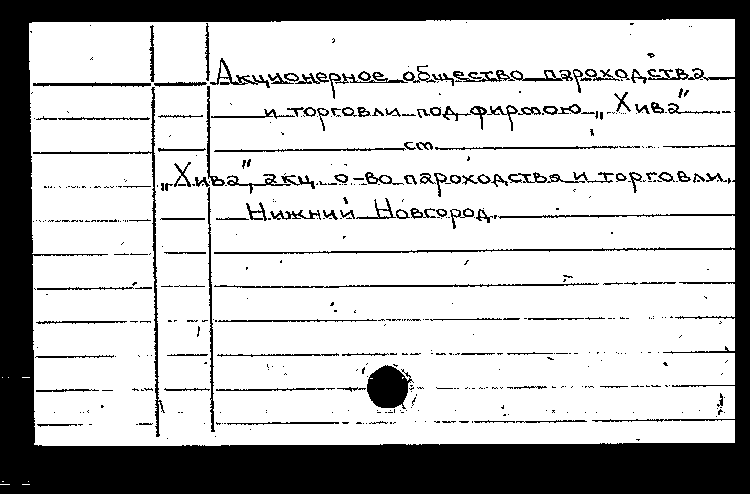 Акционерное общество пароходства
и торговли под фирмою „Хива"
см.
„Хива", акц. о-во пароходства и торговли,
Нижний Новгород.